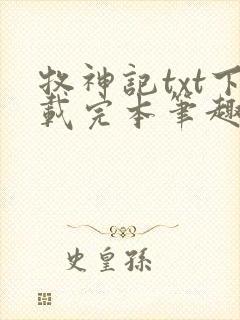 牧神記txt下
載完本筆趣
史皇孫